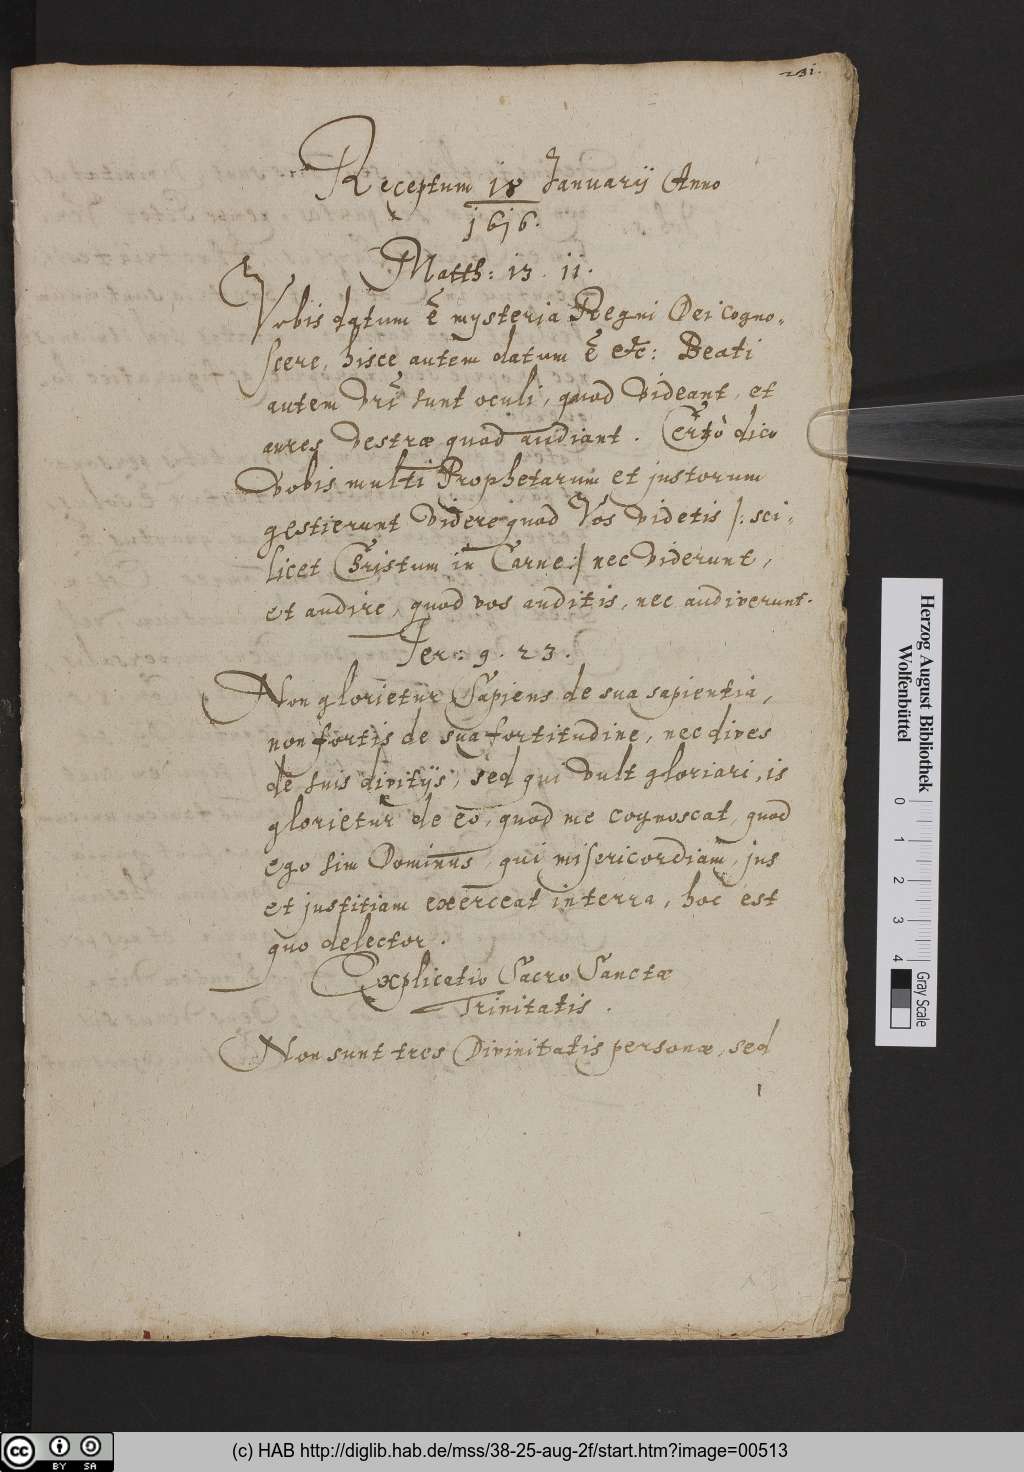 231.
Receptum 18 Januarij Anno
1616.
Matth: 13. 11.
Vobis datum ē mysteria Regni Dei cogno-
scere, hisce autem datum ē etc: Beati
autem vrī sunt oculi, quod videant, et
aures vestræ quod audiant. Certò dico
vobis multi Prophetarum et justorum
gestierunt videre quod Vos videtis /: sci-
licet Christum in Carne :/ nec viderunt,
et audire, quod vos auditis, nec audiverunt.
Jer: 9. 23.
Non glorietur Sapiens de sua sapientia,
non fortis de sua fortitudine, nec dives
de suis divitijs, sed qui vult gloriari, is
glorietur de eo, quod me cognoscat, quod
ego sim Dominus, qui misericordiam, jus
et justitiam exerceat in terra, hoc est
quo delector.
Explicatio Sacro Sanctæ
Trinitatis.
Non sunt tres Divinitatis personæ, sed
Herzog August Bibliothek
Wolfenbüttel
0 1 2 3 4
Gray Scale
cc BY SA
(c) HAB http://diglib.hab.de/mss/38-25-aug-2f/start.htm?image=00513